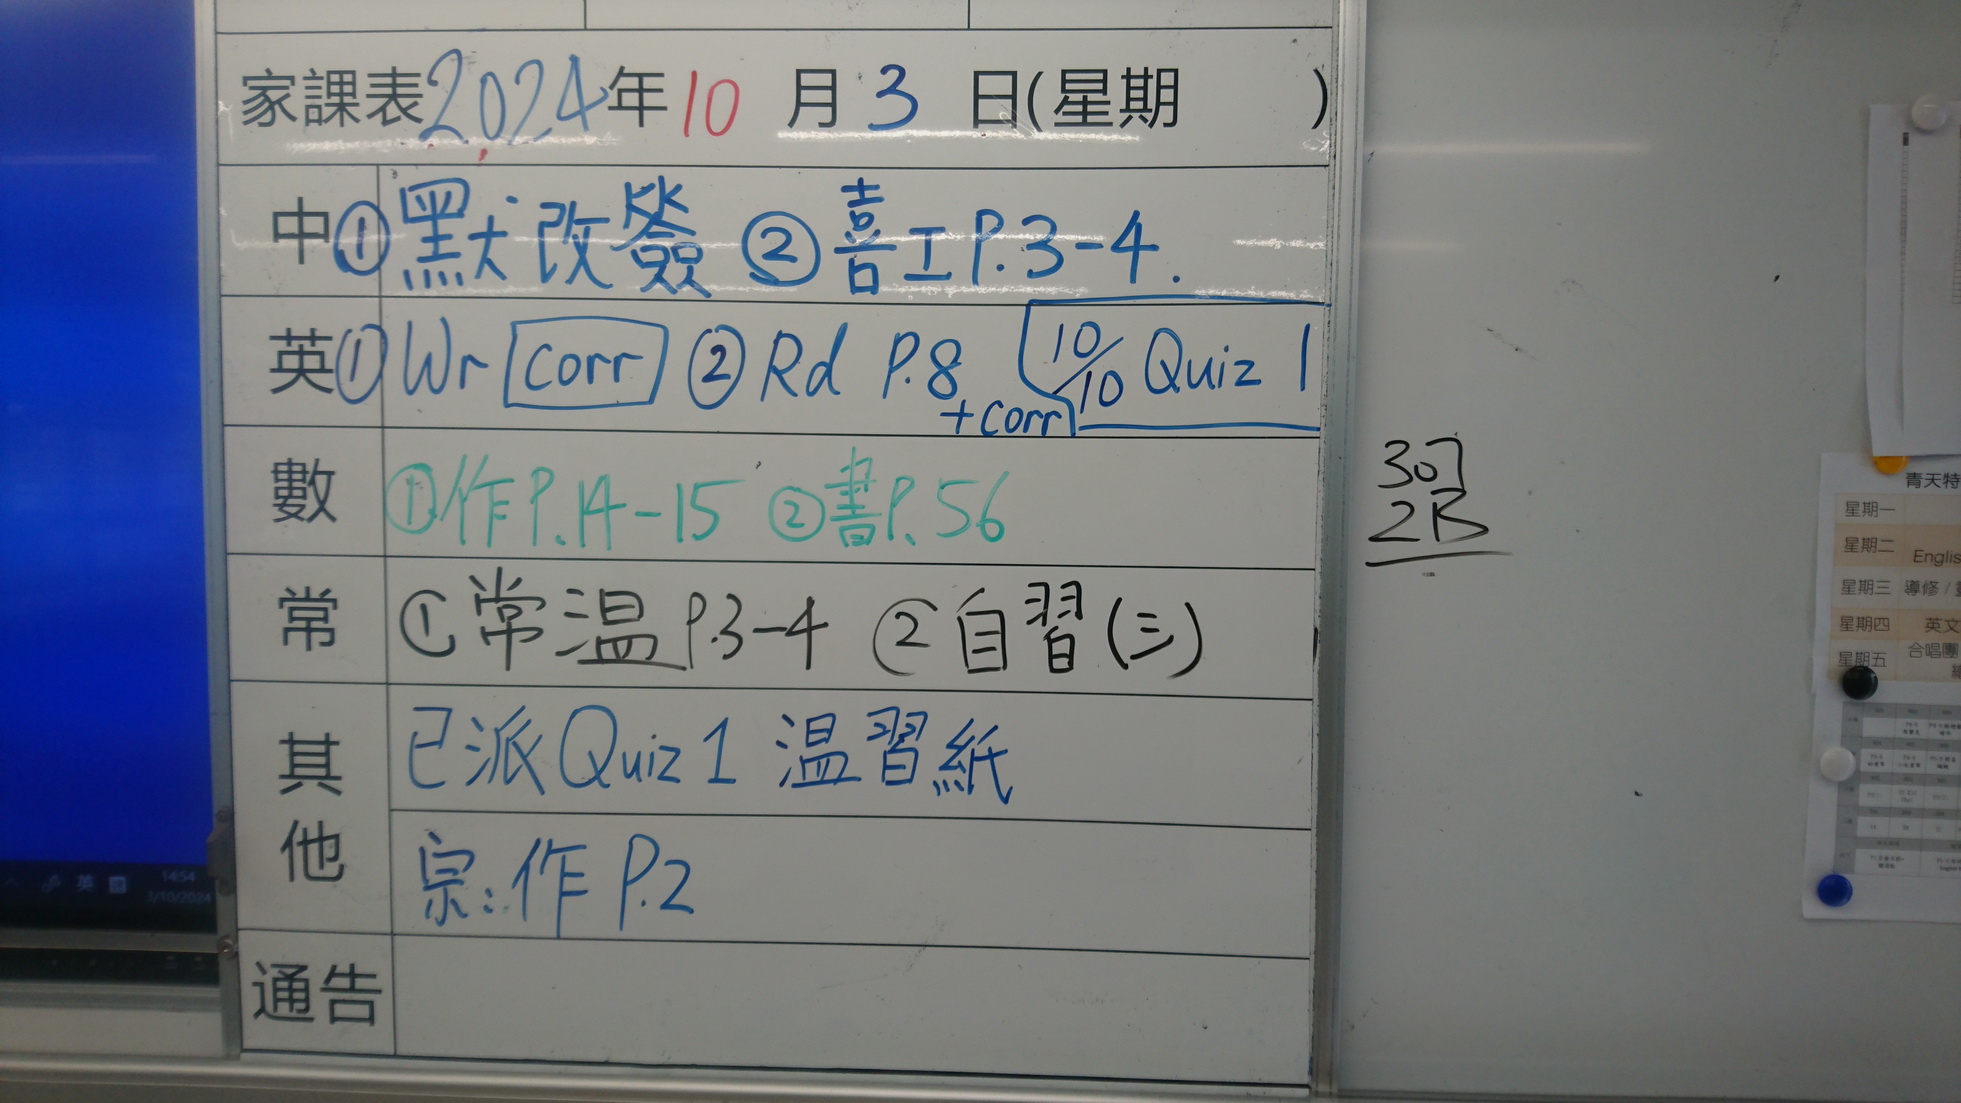 家課表2024年10月3日(星期 )
中 ①默改簽 ②喜工P.3-4.
英 ①Wr corr ②Rd P.8 10/10 Quiz 1
+corr
數 ①作P.14-15 ②書P.56
常 ①常温P.3-4 ②自習(三)
其他
已派Quiz 1 温習紙
宗:作 P.2
通告
307
2B
青天特
星期一
星期二 Englis
星期三 導修 /
星期四 英文
星期五 合唱團
英
14:54
3/10/2024